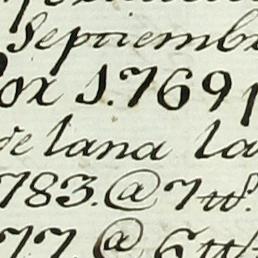 Septiembr
por 1.769 p
de lana la
783. @ 7 tt.
77 @ 6 tt